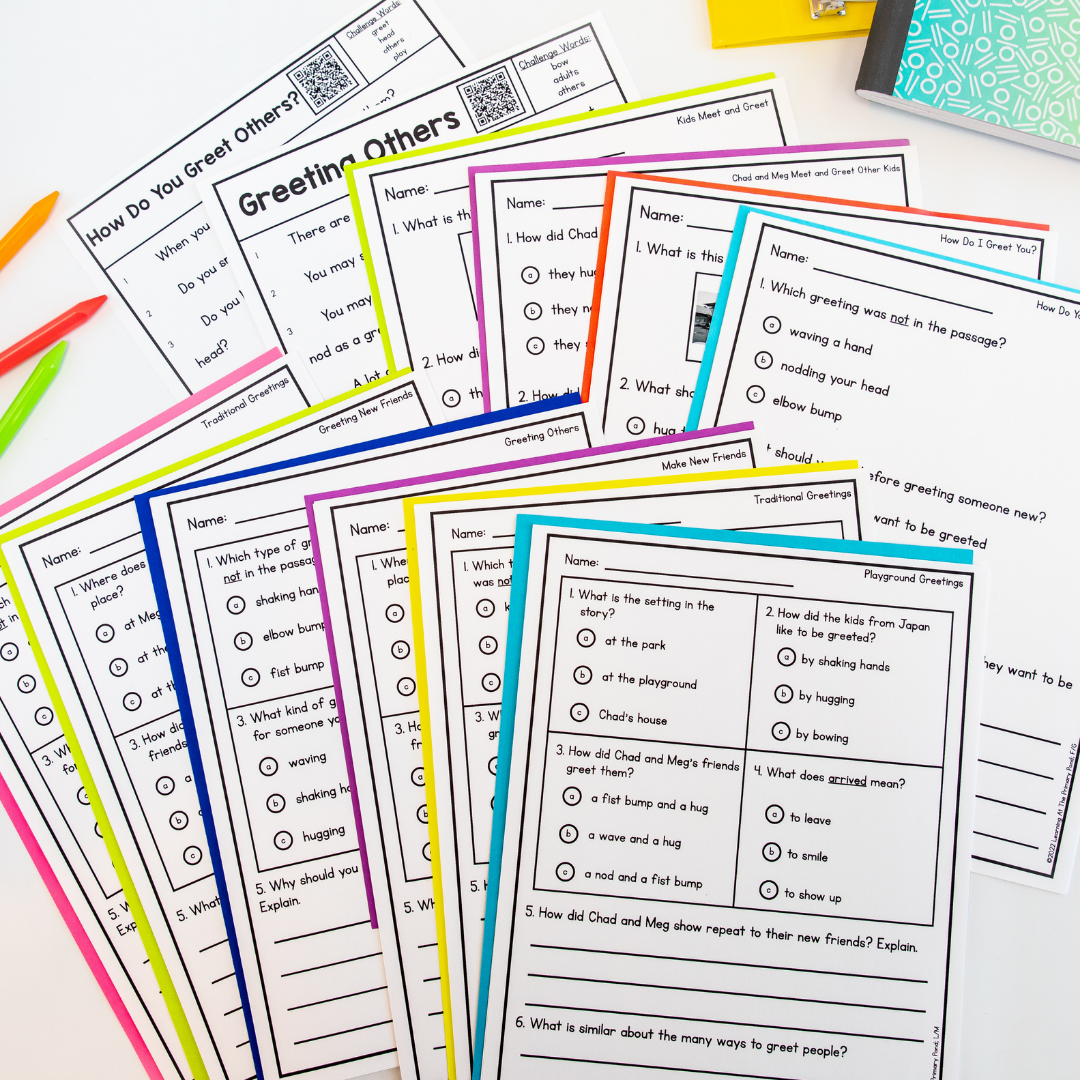 Challenge Words:
greet
head
others
play
How Do You Greet Others?
1 When you
Do you
2 Do you
3
head?
Challenge Words:
bow
adults
others
Greeting Others
1 There are
You may
2
You may
3
nod as a
A lot
Kids Meet and Greet
Name:
1. What is
2. How
a
Chad and Meg Meet and Greet Other Kids
Name:
1. How did Chad
a they
b they
c they
2. How
How Do I Greet You?
Name:
1. What is this
2. What
a hug
How Do
Name:
1. Which greeting was not in the passage?
a waving a hand
b nodding your head
c elbow bump
should
before greeting someone new?
want to be greeted
they want to be
©2022 Learning At The Primary Pond, F/G
Traditional Greetings
not in
a
b
c
3.
5.
Greeting New Friends
Name:
1. Where does
place?
a at Meg
b at the
c at
3. How did
friends
a
b
c
5. What
Greeting Others
Name:
1. Which type of
not in the
a shaking
b elbow bump
c fist bump
3. What kind of
for someone
a waving
b shaking
c hugging
5. Why should you
Explain.
Make New Friends
Name:
1.
a
b
c
3.
a
b
c
5.
Traditional Greetings
Name:
1. Which
was not
a
b
c
3.
5.
Playground Greetings
Name:
1. What is the setting in the
story?
a at the park
b at the playground
c Chad's house
2. How did the kids from Japan
like to be greeted?
a by shaking hands
b by hugging
c by bowing
3. How did Chad and Meg's friends
greet them?
a a fist bump and a hug
b a wave and a hug
c a nod and a fist bump
4. What does arrived mean?
a to leave
b to smile
c to show up
5. How did Chad and Meg show repeat to their new friends? Explain.
6. What is similar about the many ways to greet people?
Primary Pond, L/M